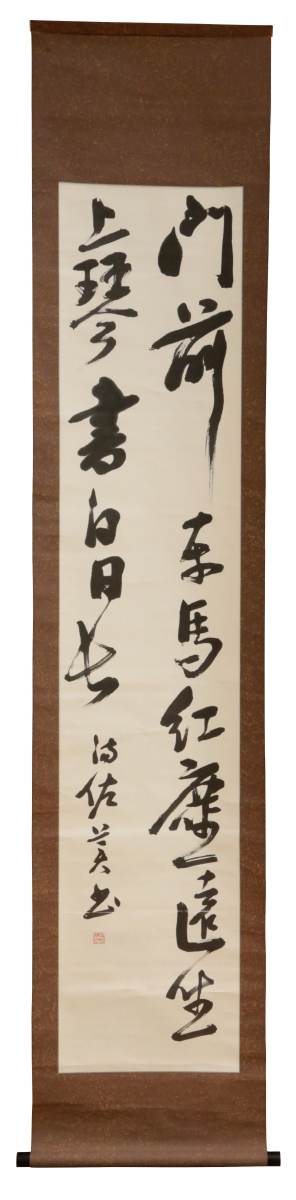 門前車馬紅塵遠坐
上琴書白日長
佐美書